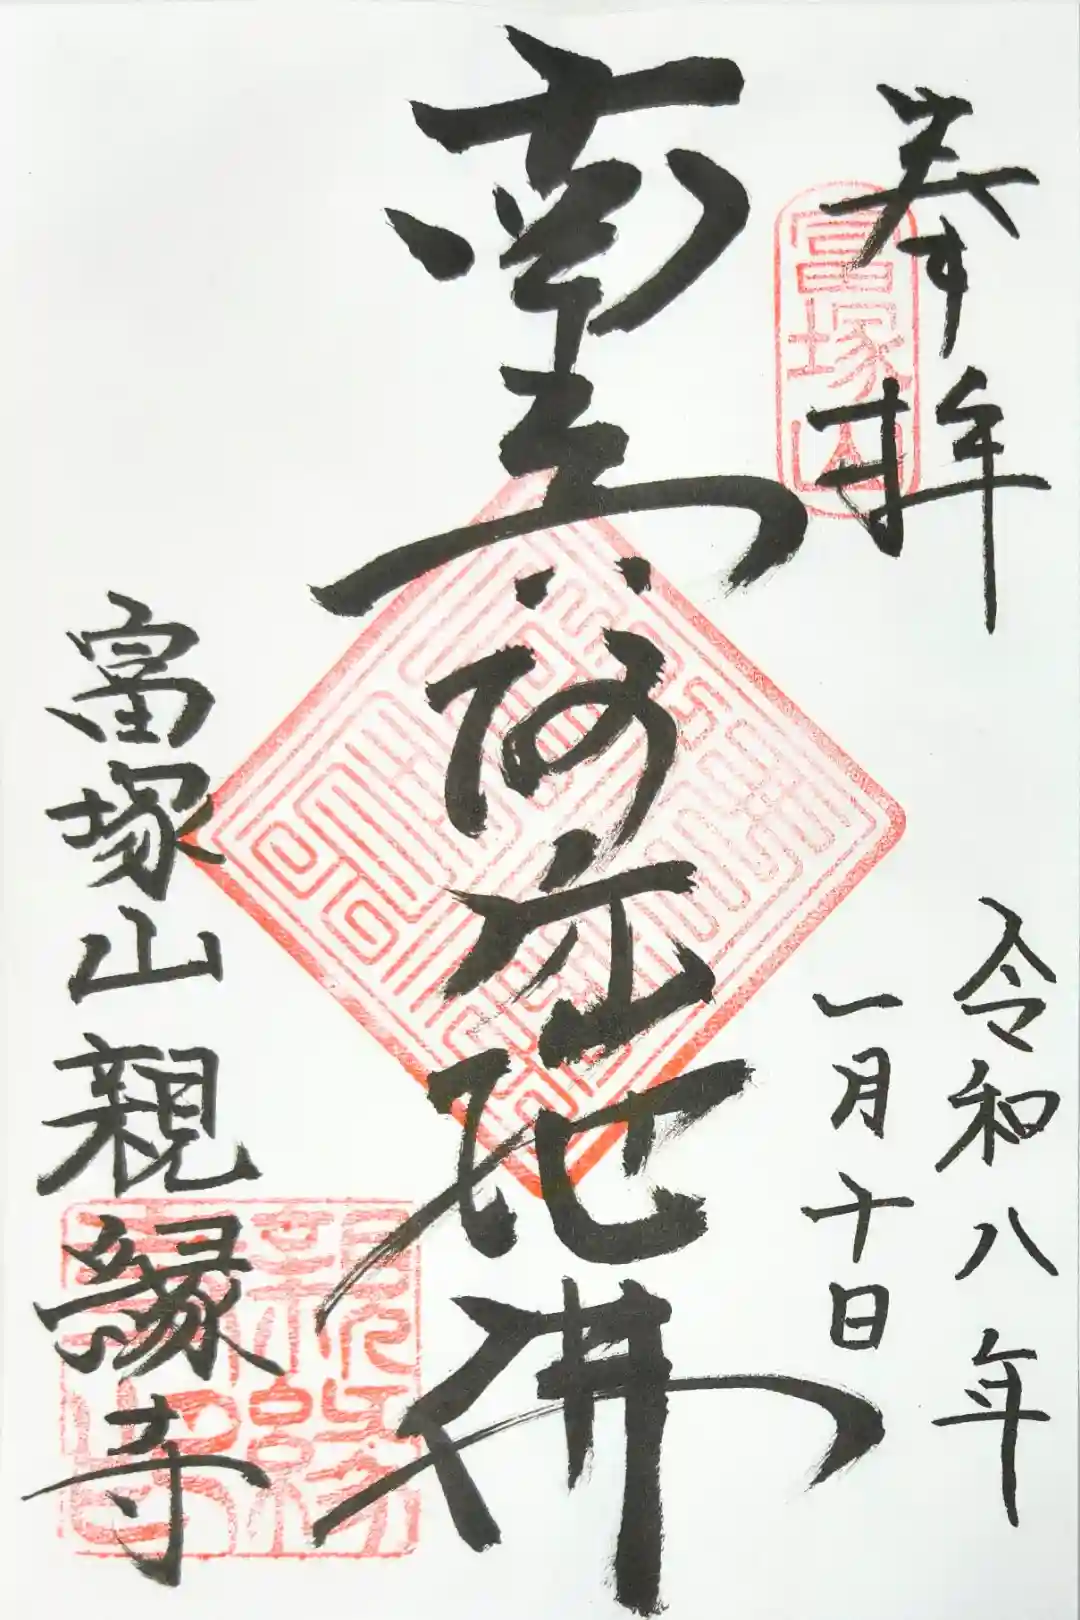 奉拝
富塚山
令和八年
一月十日
南無阿弥陀佛
富塚山親縁寺
親縁
寺印